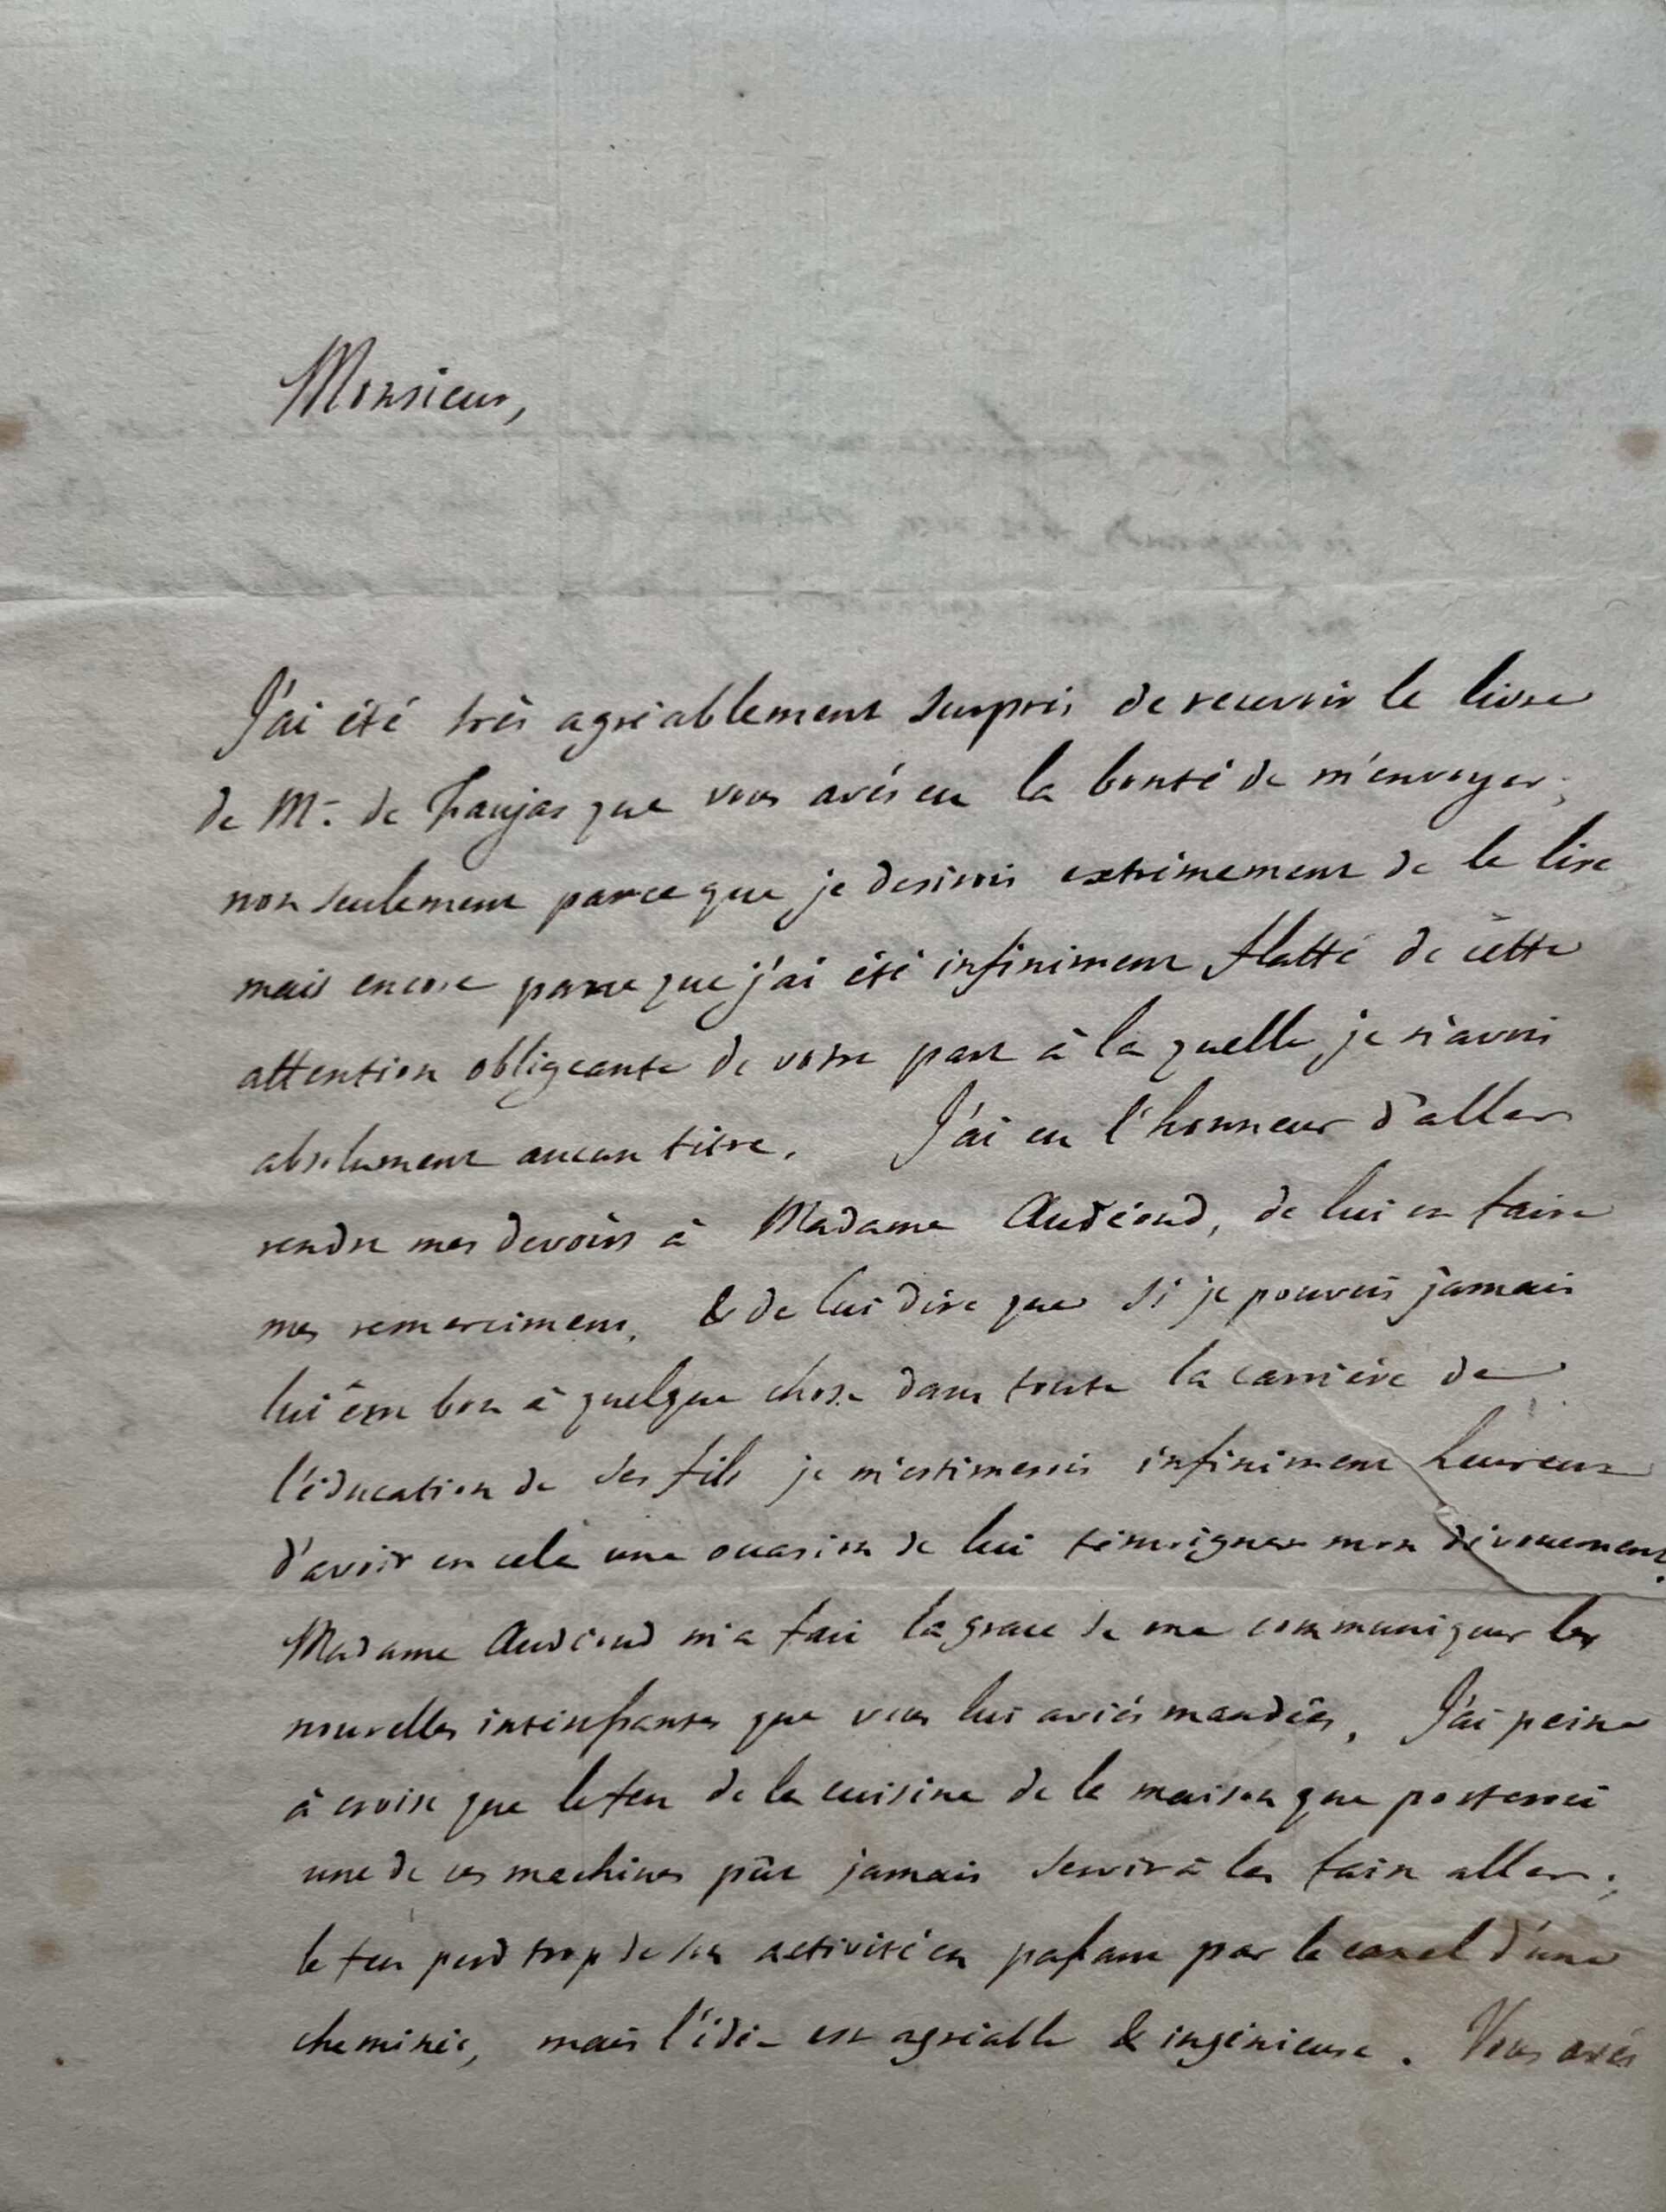 Monsieur,
J'ai été très agréablement surpris de recevoir le livre
de Mr. de Faujas que vous avés eu la bonté de m'envoyer;
non seulement parce que je desirois extrèmement de le lire
mais encore parce que j'ai été infiniment flatté de cette
attention obligeante de votre part à la quelle je n'avois
absolument aucun titre. J'ai eu l'honneur d'aller
rendre mes devoirs à Madame Audéoud, de lui en faire
mes remercimens, & de lui dire que si je pouvois jamais
lui être bon à quelque chose dans toute la carrière de
l'éducation de ses fils je m'estimerois infiniment heureux
d'avoir en cela une occasion de lui témoigner mon dévouement.
Madame Audéoud m'a fait la grace de me communiquer les
nouvelles intéressantes que vous lui aviés mandées. J'ai peine
à croire que le feu de la cuisine de la maison que
une de ces machines pût jamais servir à les faire aller;
le feu perd trop de son activité en passant par le canal d'une
cheminée, mais l'idée est agréable & ingénieuse. Vous avés